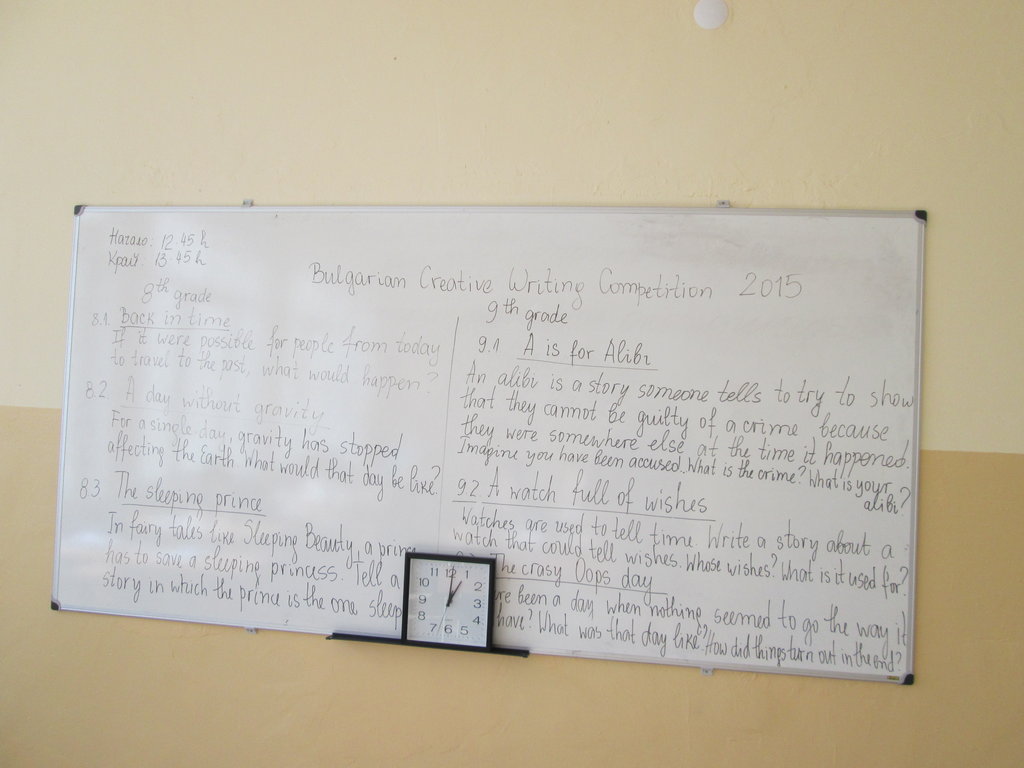 Начало: 12.45 h
Край: 13.45 h
Bulgarian Creative Writing Competition 2015
8th grade
8.1. Back in time
If it were possible for people from today
to travel to the past, what would happen?
8.2. A day without gravity
For a single day, gravity has stopped
affecting the Earth. What would that day be like?
8.3. The sleeping prince
In fairy tales like Sleeping Beauty, a
has to save a sleeping princess. Tell a
story in which the prince is the one
9th grade
9.1. A is for Alibi
An alibi is a story someone tells to try to show
that they cannot be guilty of a crime because
they were somewhere else at the time it happened.
Imagine you have been accused. What is the crime? What is your
alibi?
9.2. A watch full of wishes
Watches are used to tell time. Write a story about a
watch that could tell wishes. Whose wishes? What is it used for?
The crasy Oops day
been a day, when nothing seemed to go the way it
have? What was that day like? How did things turn out in the end?
11 12 1
10 2
9 3
8 4
7 6 5